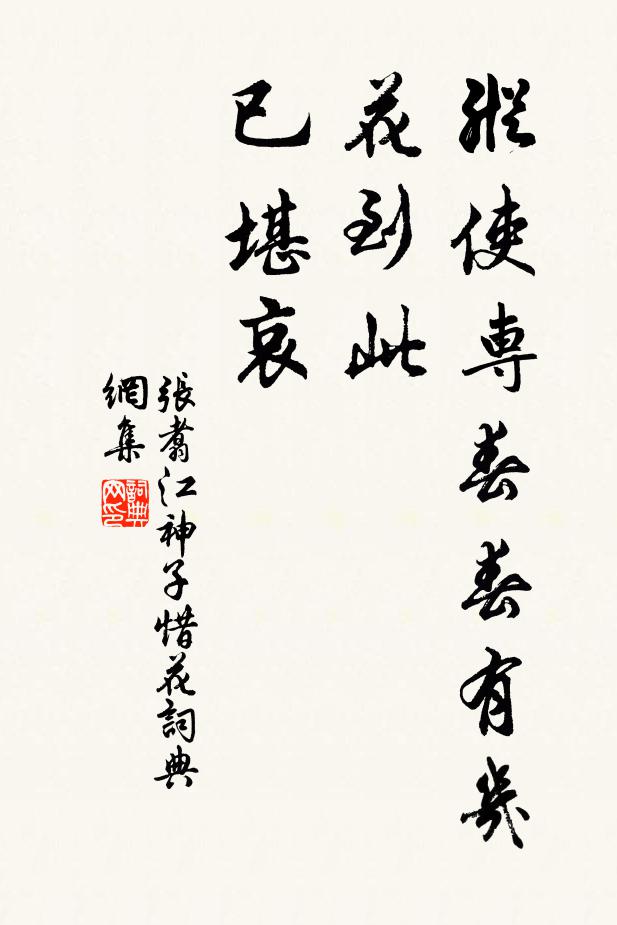 縱使專春春有幾
花到此
已堪哀
張翥江神子惜花詞典
網集
詞典
网印